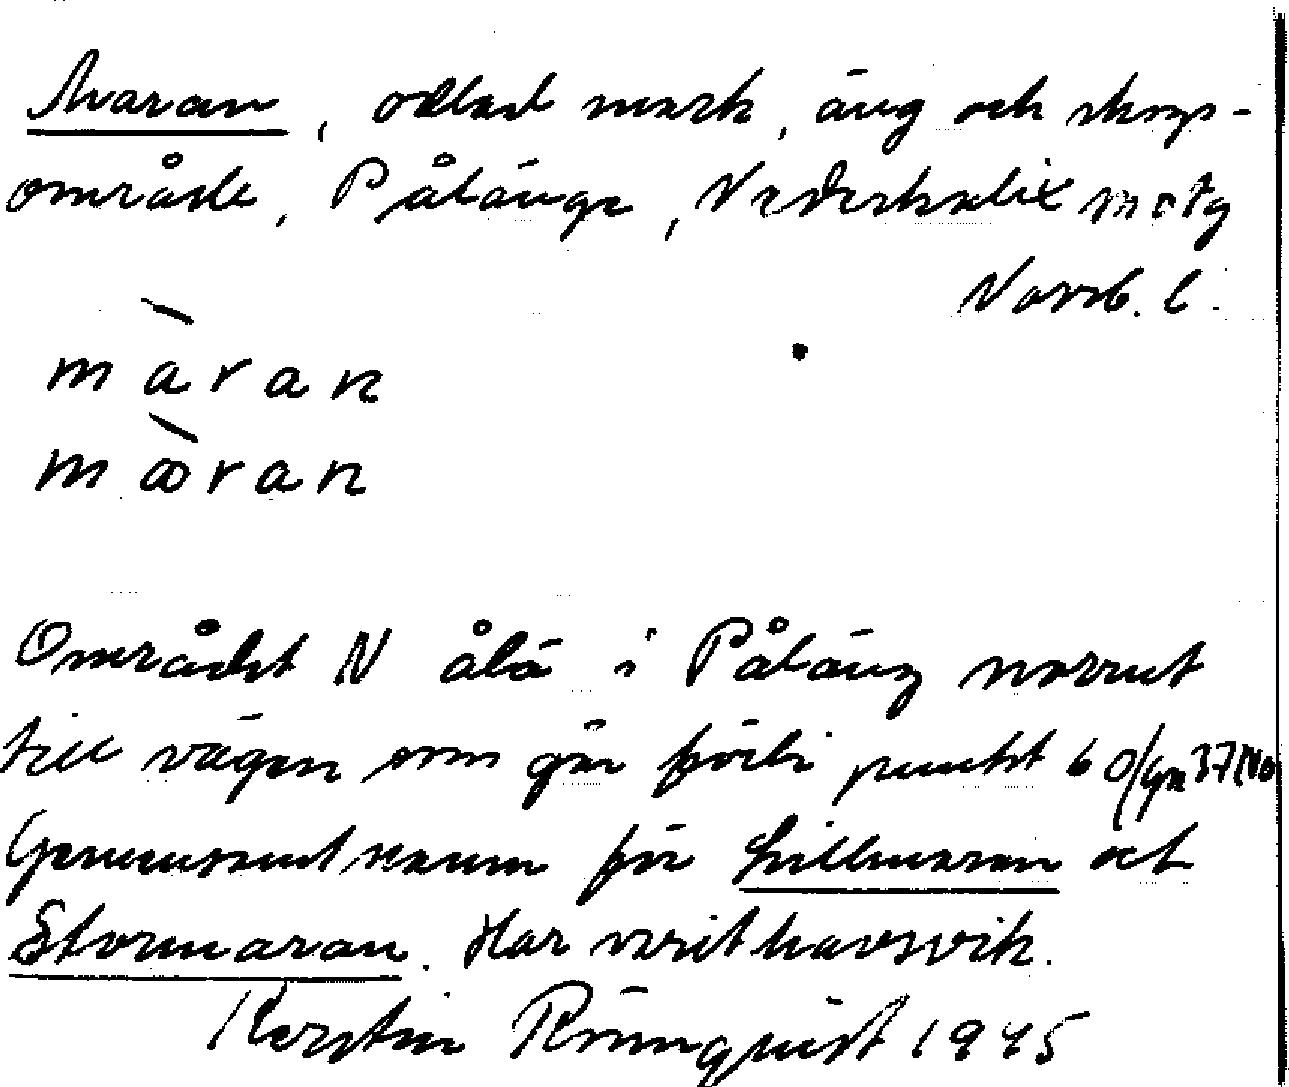 Maran, odlad mark, äng och skogs-
område, Pålänge, Nederkalix sn otg
Norrb. l.
màran
mæ̀ran
Området N ålä i Påläng norrut
till vägen som går förbi punkt 60/
Gemensamt namn för Lillmaran och
Stormaran. Har varit havsvik.
Kerstin Rönnquist 1945